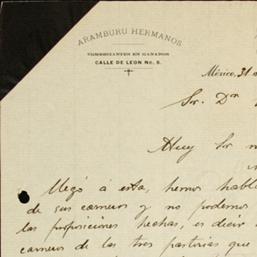 ARAMBURU HERMANOS
COMERCIANTES EN GANADOS
CALLE DE LEON No. 8.
México, 31 d
Sor. Dn
Muy Sor m
Llegó á esta, hemos habl
de sus carneros y no podemos
las proposiciones hechas, es decir
carneros de las tres partidas que